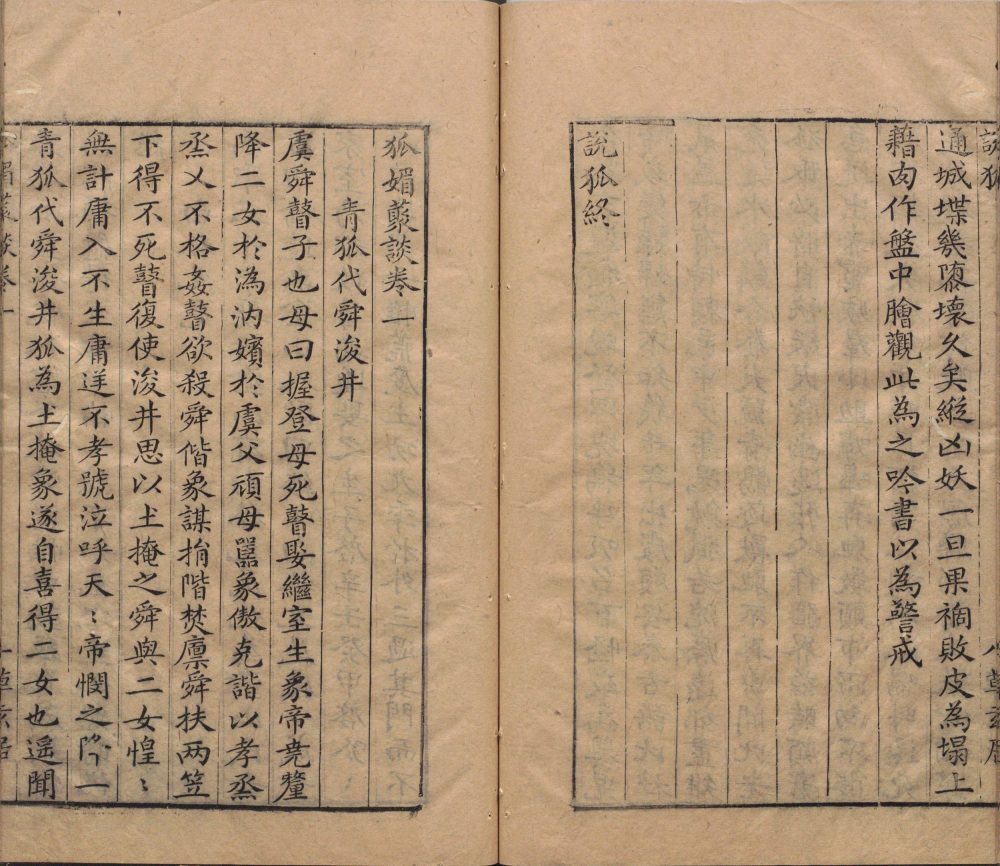 說狐
通城堞幾隳壞久矣縱凶妖一旦果禍敗皮為塌上
藉肉作盤中膾觀此為之吟書以為警戒
說狐終
狐媚藂談卷一
青狐代舜浚井
虞舜瞽子也母曰握登母死瞽娶繼室生象帝堯釐
降二女於溈汭嬪於虞父頑母嚚象傲克諧以孝烝
烝乂不格姦瞽欲殺舜偕象謀捐階焚廩舜扶两笠
下得不死瞽復使浚井思以土掩之舜與二女惶〻
無計庸入不生庸逆不孝號泣呼天〻帝憫之降一
青狐代舜浚井狐為土掩象遂自喜得二女也遥聞